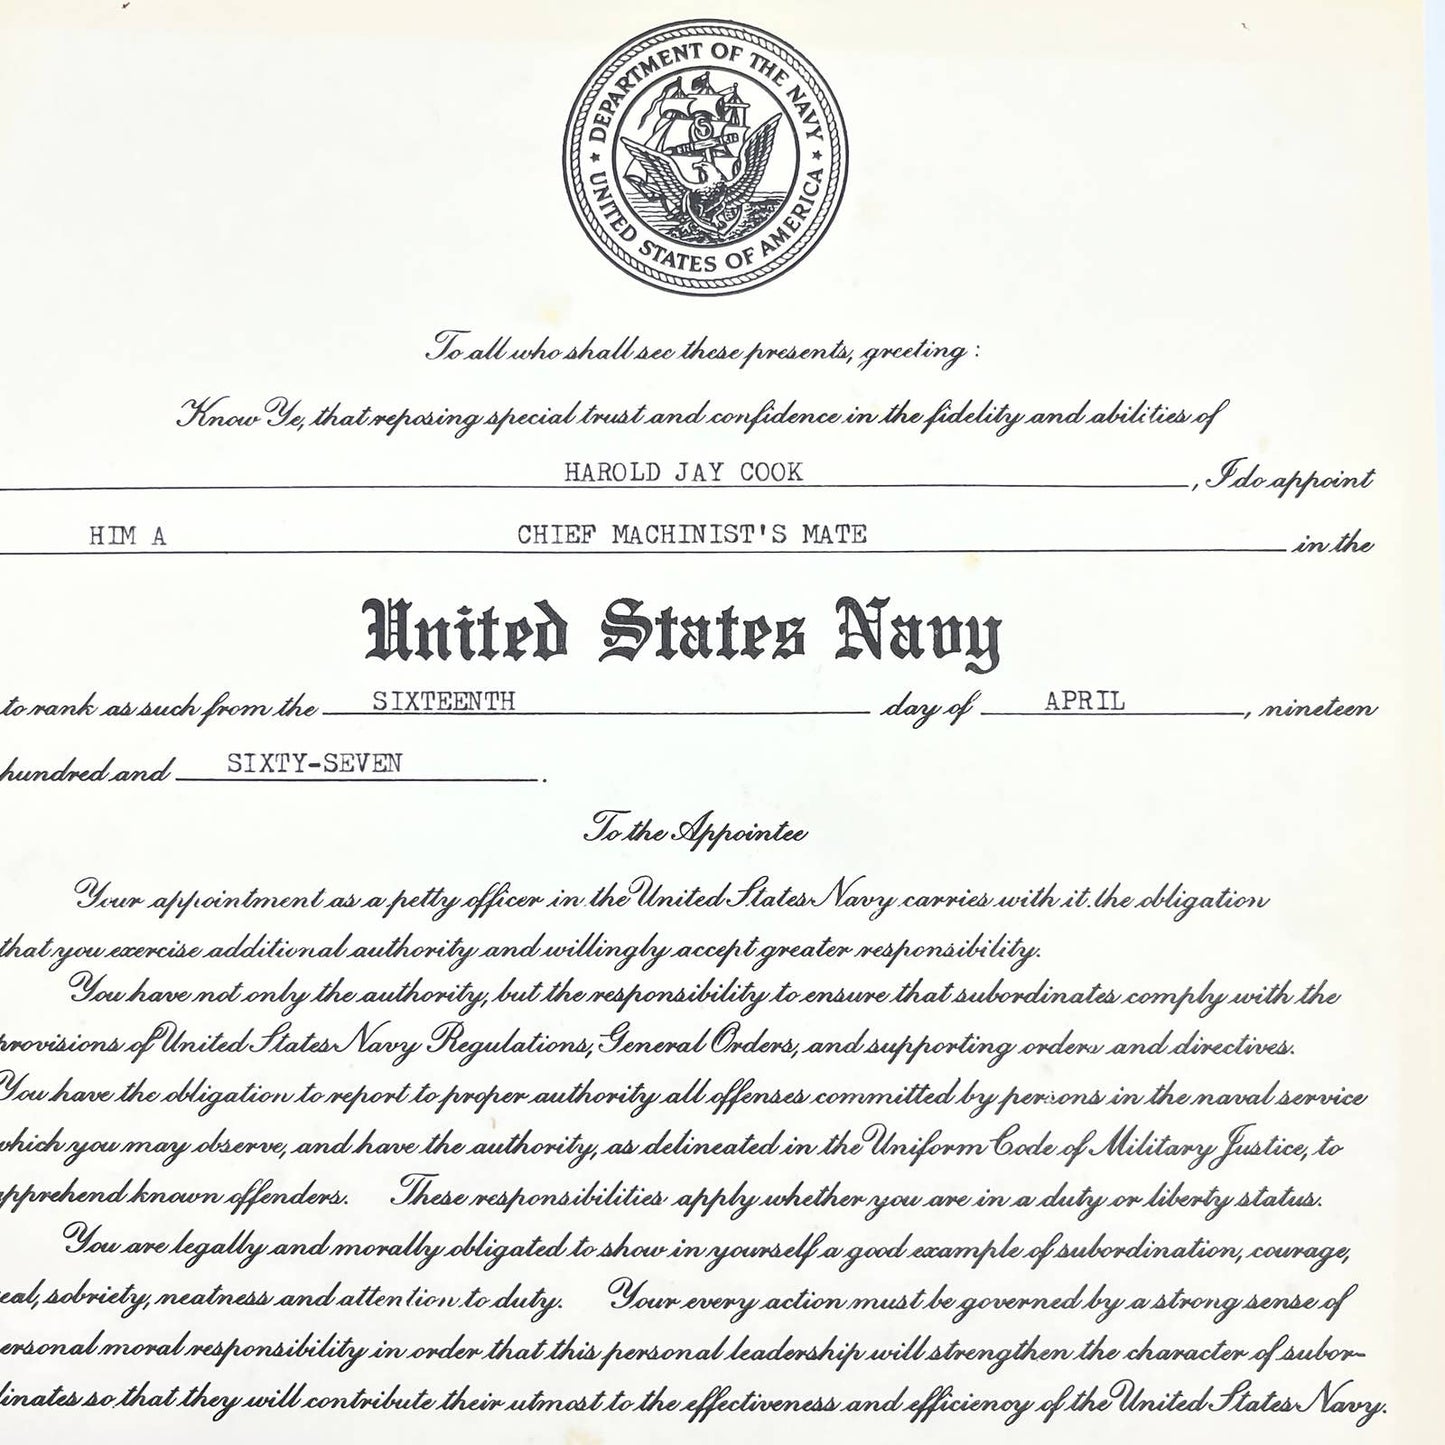 DEPARTMENT OF THE NAVY
★ UNITED STATES OF AMERICA ★
To all who shall see these presents, greeting:
Know Ye, that reposing special trust and confidence in the fidelity and abilities of
HAROLD JAY COOK, I do appoint
HIM A CHIEF MACHINIST'S MATE in the
United States Navy
to rank as such from the SIXTEENTH day of APRIL, nineteen
hundred and SIXTY-SEVEN.
To the Appointee
Your appointment as a petty officer in the United States Navy carries with it the obligation
that you exercise additional authority and willingly accept greater responsibility.
You have not only the authority, but the responsibility to ensure that subordinates comply with the
provisions of United States Navy Regulations, General Orders, and supporting orders and directives.
You have the obligation to report to proper authority all offenses committed by persons in the naval service
which you may observe, and have the authority, as delineated in the Uniform Code of Military Justice, to
apprehend known offenders. These responsibilities apply whether you are in a duty or liberty status.
You are legally and morally obligated to show in yourself a good example of subordination, courage,
eal, sobriety, neatness and attention to duty. Your every action must be governed by a strong sense of
ersonal moral responsibility in order that this personal leadership will strengthen the character of subor-
dinates so that they will contribute their utmost to the effectiveness and efficiency of the United States Navy.